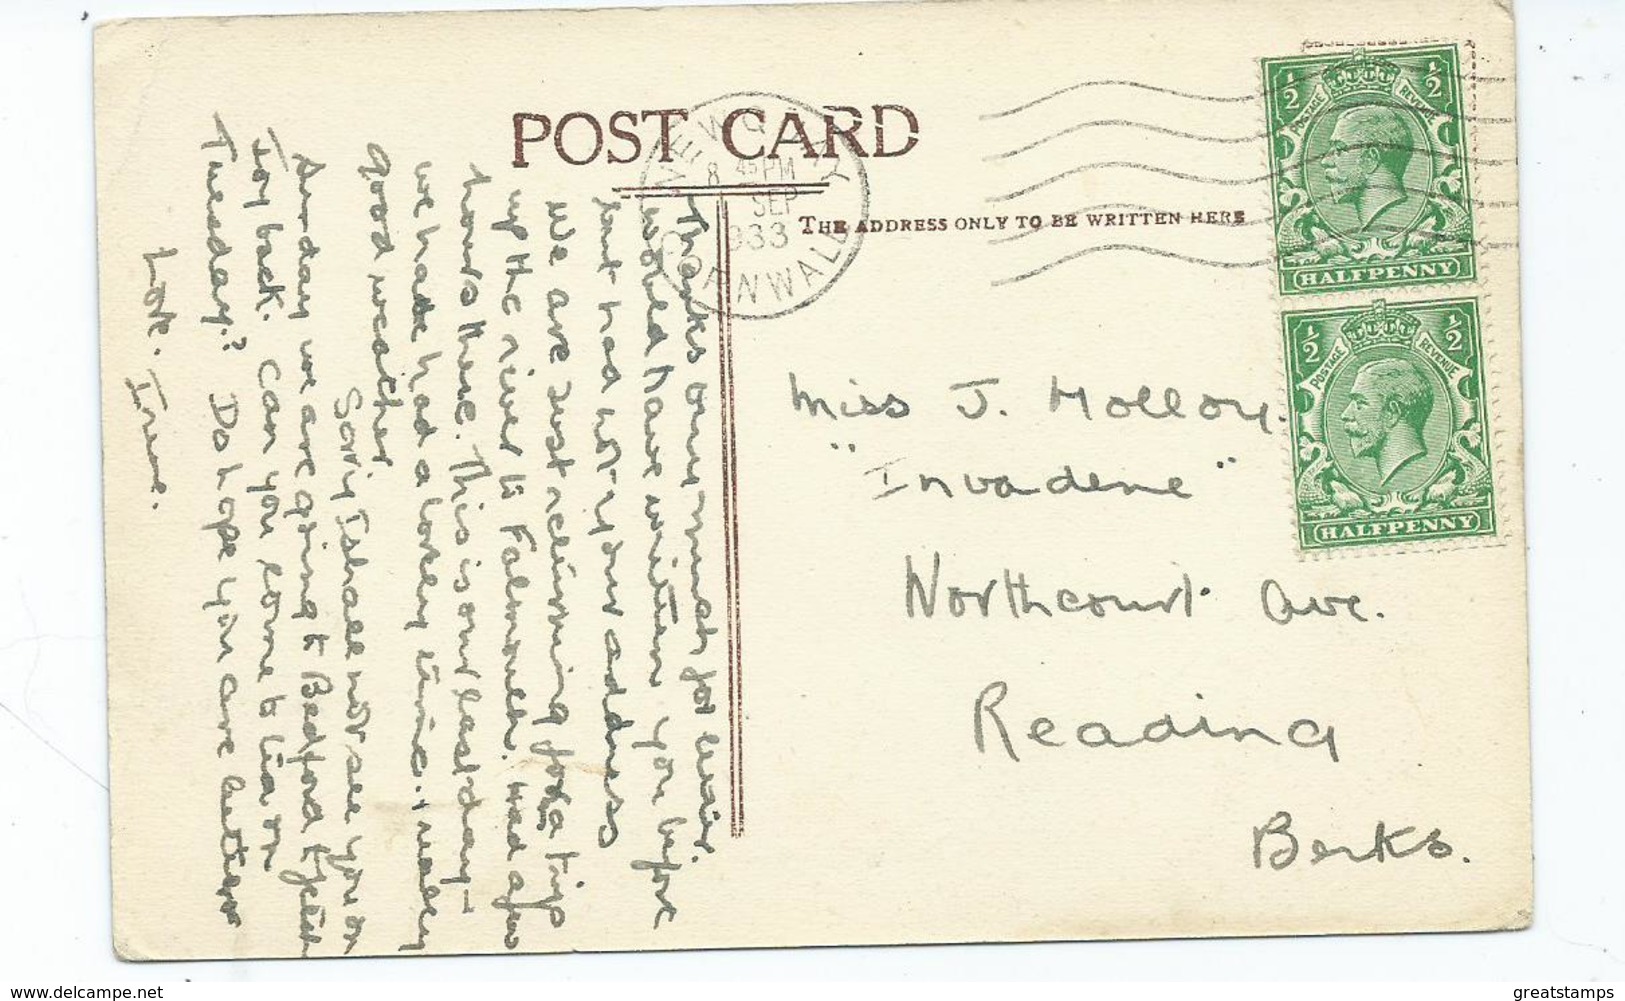 POST CARD
THE ADDRESS ONLY TO BE WRITTEN HERE
NEWQUAY
8 45 PM
SEP
933
CORNWALL
½ ½
POSTAGE REVENUE
HALFPENNY
½ ½
POSTAGE REVENUE
HALFPENNY
Miss J. Molloy.
"Invadene"
Northcourt Ave.
Reading
Berks.
Thanks very much for
would have written you before
but had not your address
We are just returning from a trip
up the river to Falmouth. Had a few
hours there. This is our last day -
we have had a lovely time. +
good weather
Sorry I shall not see you on
Sunday we are going to Bedford to
back. Can you come to tea on
Tuesday? Do hope you are better
Love. Irene.
www.delcampe.net
greatstamps